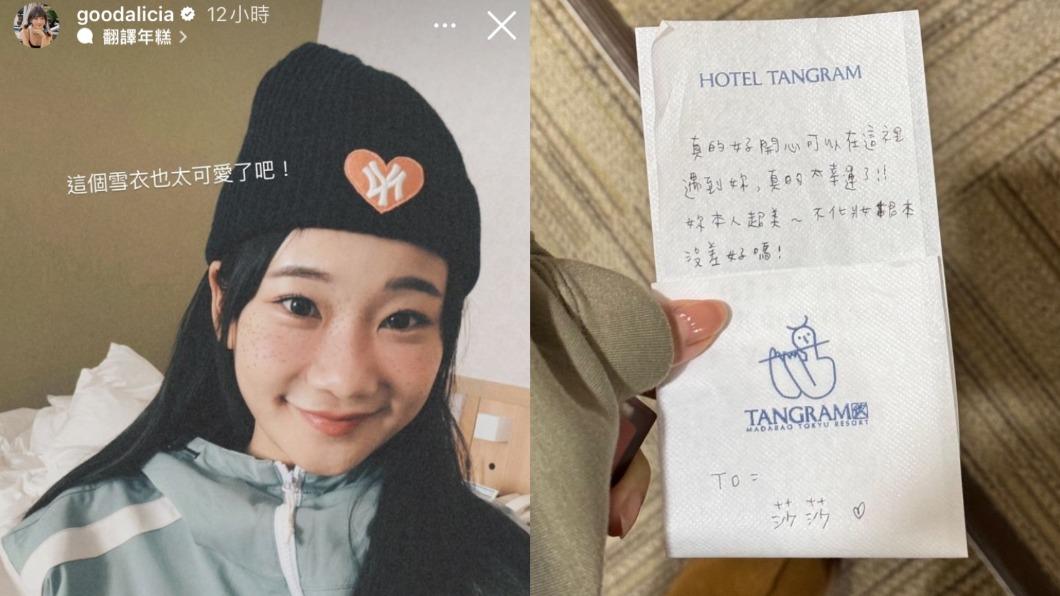 goodalicia 12小時
翻譯年糕 >
這個雪衣也太可愛了吧！
NY
HOTEL TANGRAM
真的好開心可以在這裡
遇到妳，真的太幸運了!!
妳本人超美～不化妝根本
沒差好嗎！
TANGRAM
MADARAO TOKYU RESORT
TO=
莎莎♡